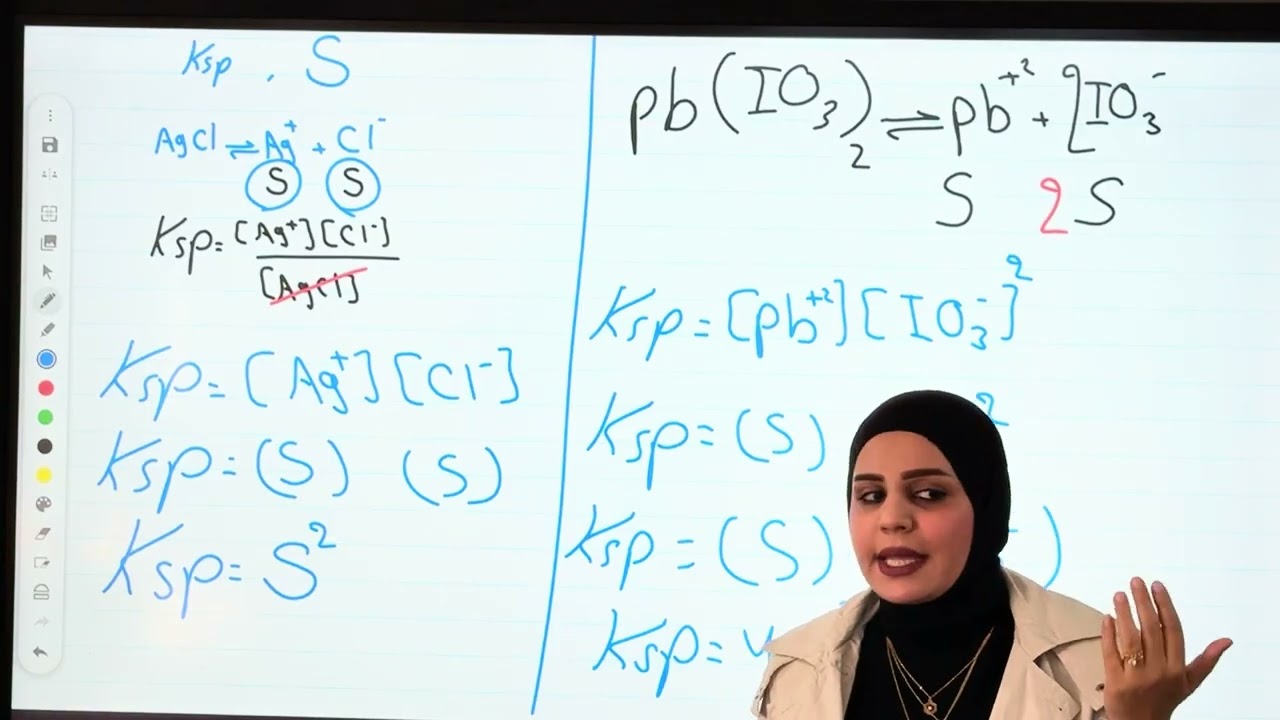 Ksp . S
AgCl ⇌ Ag⁺ + Cl⁻
S S
Ksp = [Ag⁺][Cl⁻]
[AgCl]
Ksp = [Ag⁺][Cl⁻]
Ksp = (S) (S)
Ksp = S²
pb(IO₃)₂ ⇌ pb⁺² + 2IO₃⁻
S 2S
Ksp = [pb⁺²][IO₃⁻]²
Ksp = (S) ²
Ksp = (S) )
Ksp =